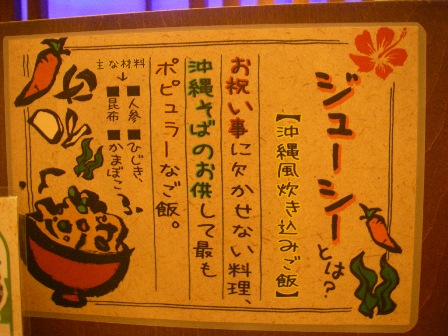 ジューシーとは?
【沖縄風炊き込みご飯】
お祝い事に欠かせない料理、
沖縄そばのお供して最も
ポピュラーなご飯。
主な材料
↓
■人参■ひじき、
■昆布■かまぼこ